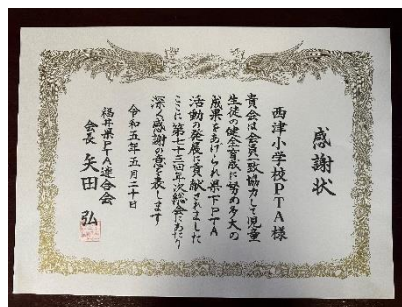 感謝状
西津小学校PTA様
貴会は会員一致協力して児童
生徒の健全育成に努め多大の
成果をあげられ県下PTA
活動の発展に貢献されました
ここに第七十三回年次総会にあたり
深く感謝の意を表します
令和五年五月二十日
福井県PTA連合会
会長 矢田 弘